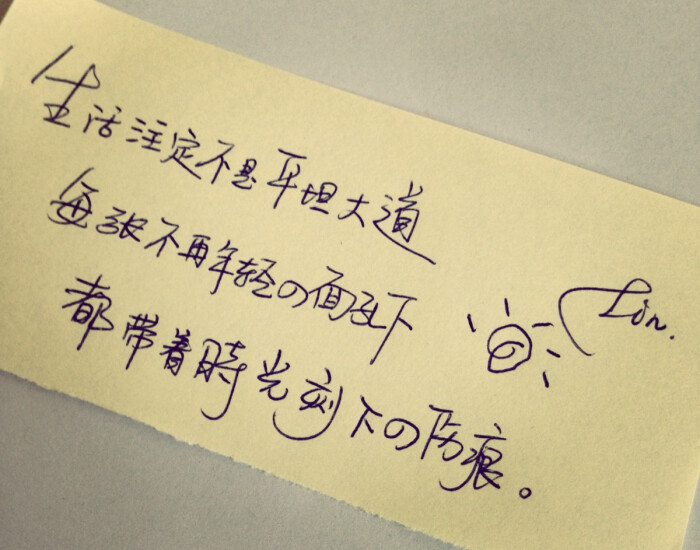 生活注定不是平坦大道
每张不再年轻の面孔下
都带着時光刻下の伤痕。
Lin.